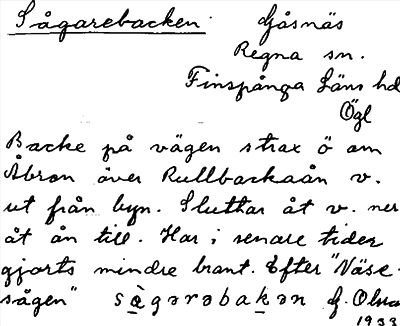 Sågarebacken. Gåsnäs
Regna sn.
Finspånga Läns hd
Ögl
Backe på vägen strax ö om
Åbron över Rullbackaån v.
ut från byn. Sluttar åt v. ner
åt ån till. Har i senare tider
gjorts mindre brant. Efter "Näse-
sågen" sạ̀gərəbakən G.
1933